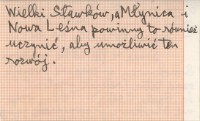 Wielki Sławków, a Młynica i
Nowa Leśna powinny to również
uczynić, aby umożliwić ten
rozwój.